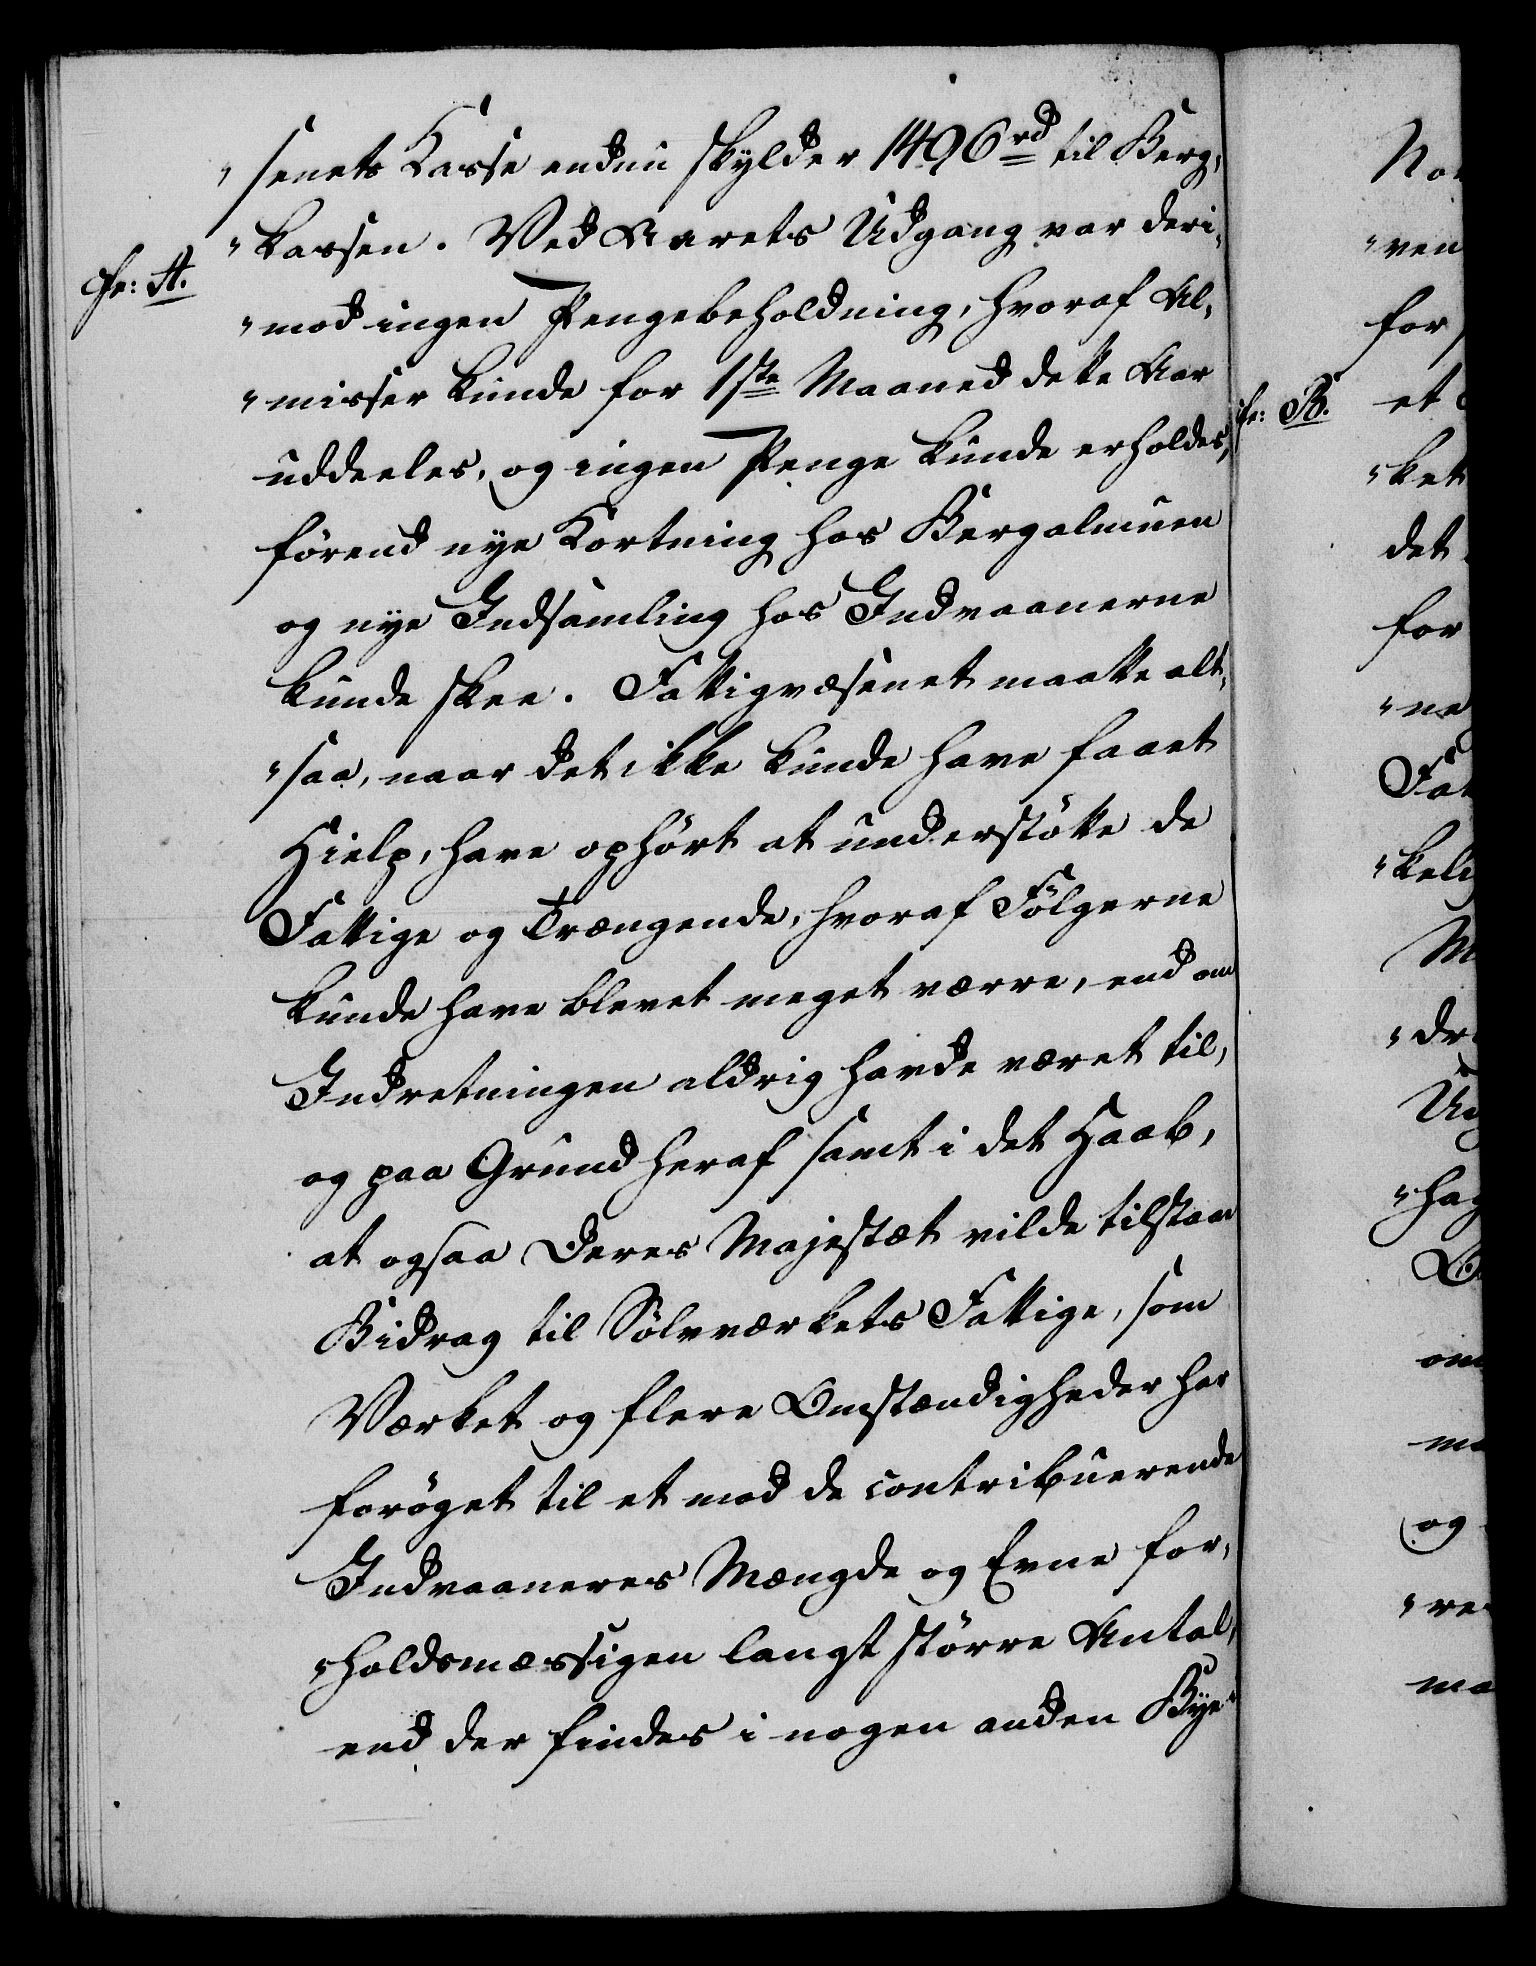 "senets Kasse endnu skylder 1496 rd til Berg,
"kassen. Ved Aarets Udgang var deri,
"mod ingen Pengebeholdning, hvoraf Al,
"misser kunde for 1ste Maaned dette Aar
uddeeles, og ingen Penge kunde erholdes,
förend nye Kortning hos Bergalmuen
og nye Indsamling hos Indvaanerne
kunde skee. Fattigvæsenet maatte alt,
"saa, naar det ikke kunde have faaet
Hielp, have ophört at understötte de
Fattige og Trængende, hvoraf Fölgerne
kunde have blevet meget værre, end om
Indretningen aldrig havde været til,
og paa Grund heraf samt i det Haab,
at ogsaa Deres Majestæt vilde tilstaae
Bidrag til Sölvværkets Fattige, som
Værket og flere Omstændigheder har
foröget til et mod de contribuerende
Indvaaneres Mængde og Evne for,
"holdsmæssigen langt större Antal,
end der findes i nogen anden Bye
cfr: A.
cfr: B.
"ven
for
et
"ket
det
for
"ne
Fat
"keli
"dr
om
og